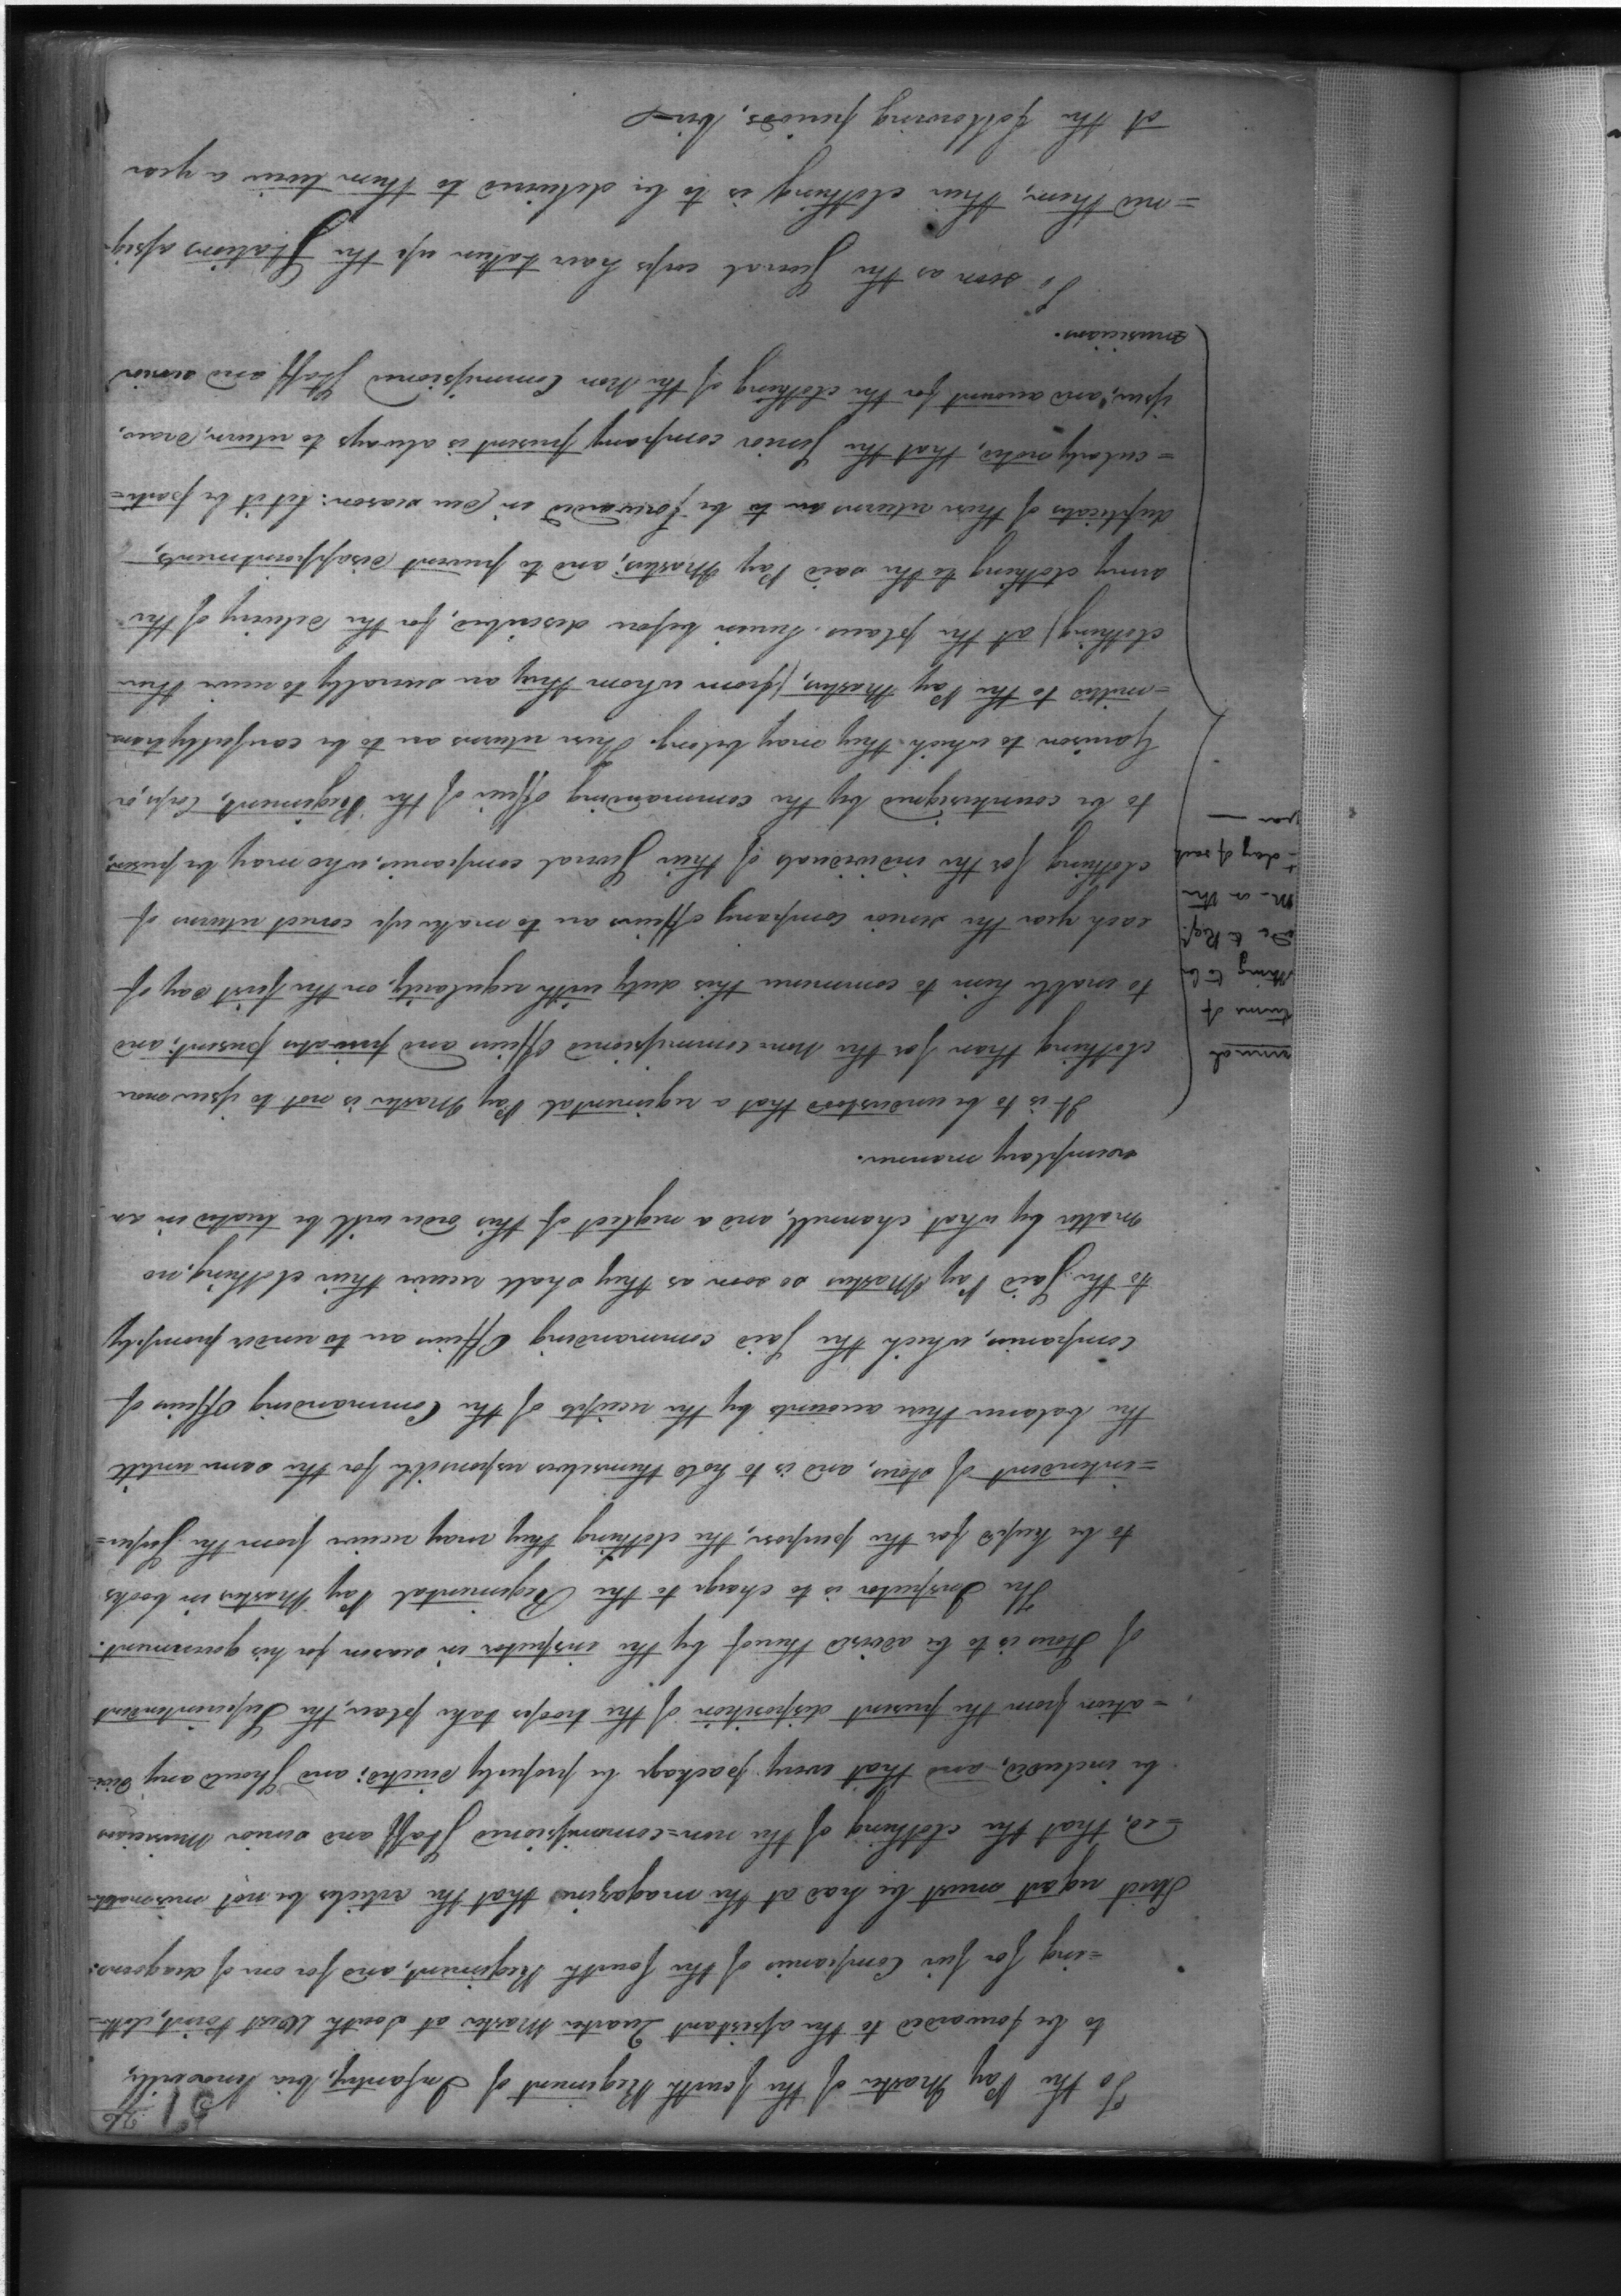 51
26
To the Pay Master of the fourth Regiment of Infantry, via Knoxville,
to be forwarded to the assistant Quarter Master at South West Point, cloth-
=ing for five Companies of the fourth Regiment, and for one of dragoons:
Strict regard must be had at the magazine that the articles be not mismatch-
=ed, that the clothing of the non=commissioned Staff and senior Musicians
be included, and that every package be properly directed; and Should any devi-
=ation from the present disposition of the troops take place, the Superintendent
of Stores is to be advised thereof by the inspector in season for his government.
The Inspector is to charge to the Regimental Pay Masters in books
to be kept for the purpose, the clothing they may receive from the Super=
=intendent of stores, and is to hold themselves responsible for the same untill
the balance their accounts by the receipts of the Commanding Officers of
Companies, which the Said commanding Officers are to render promptly
to the Said Pay Masters so soon as they shall receive their clothing, no
matter by what channell, and a neglect of this order will be treated in an
exemplary manner.
It is to be understood that a regimental Pay Master is not to issue more
clothing than for the Non-commissioned Officers and privates present; and
to enable him to commence this duty with regularity, on the first day of
each year the senior Company officers are to make up correct returns of
clothing for the individuals of their Several companies, who may be present,
to be countersigned by the commanding officer of the Regiment, Corps, or
Garrison to which they may belong. These returns are to be carefully trans-
=mitted to the Pay Masters, (from whom they are severally to receive their
clothing) at the places herein before described, for the delivery of the
army clothing to the said Pay Masters; and to prevent disappointments,
duplicates of these returns are to be forwarded in due season: let it be parti=
=cularly noted, that the Senior company present is always to return, draw,
issue, and account for the clothing of the Non Commissioned Staff and senior
musicians.
So soon as the Several corps have taken up the Stations assig-
=ned them, their clothing is to be delivered to them twice a year
at the following periods, Viz
annual
turns of
thing to be
de to Reg.
M. on the
t day of each
year —